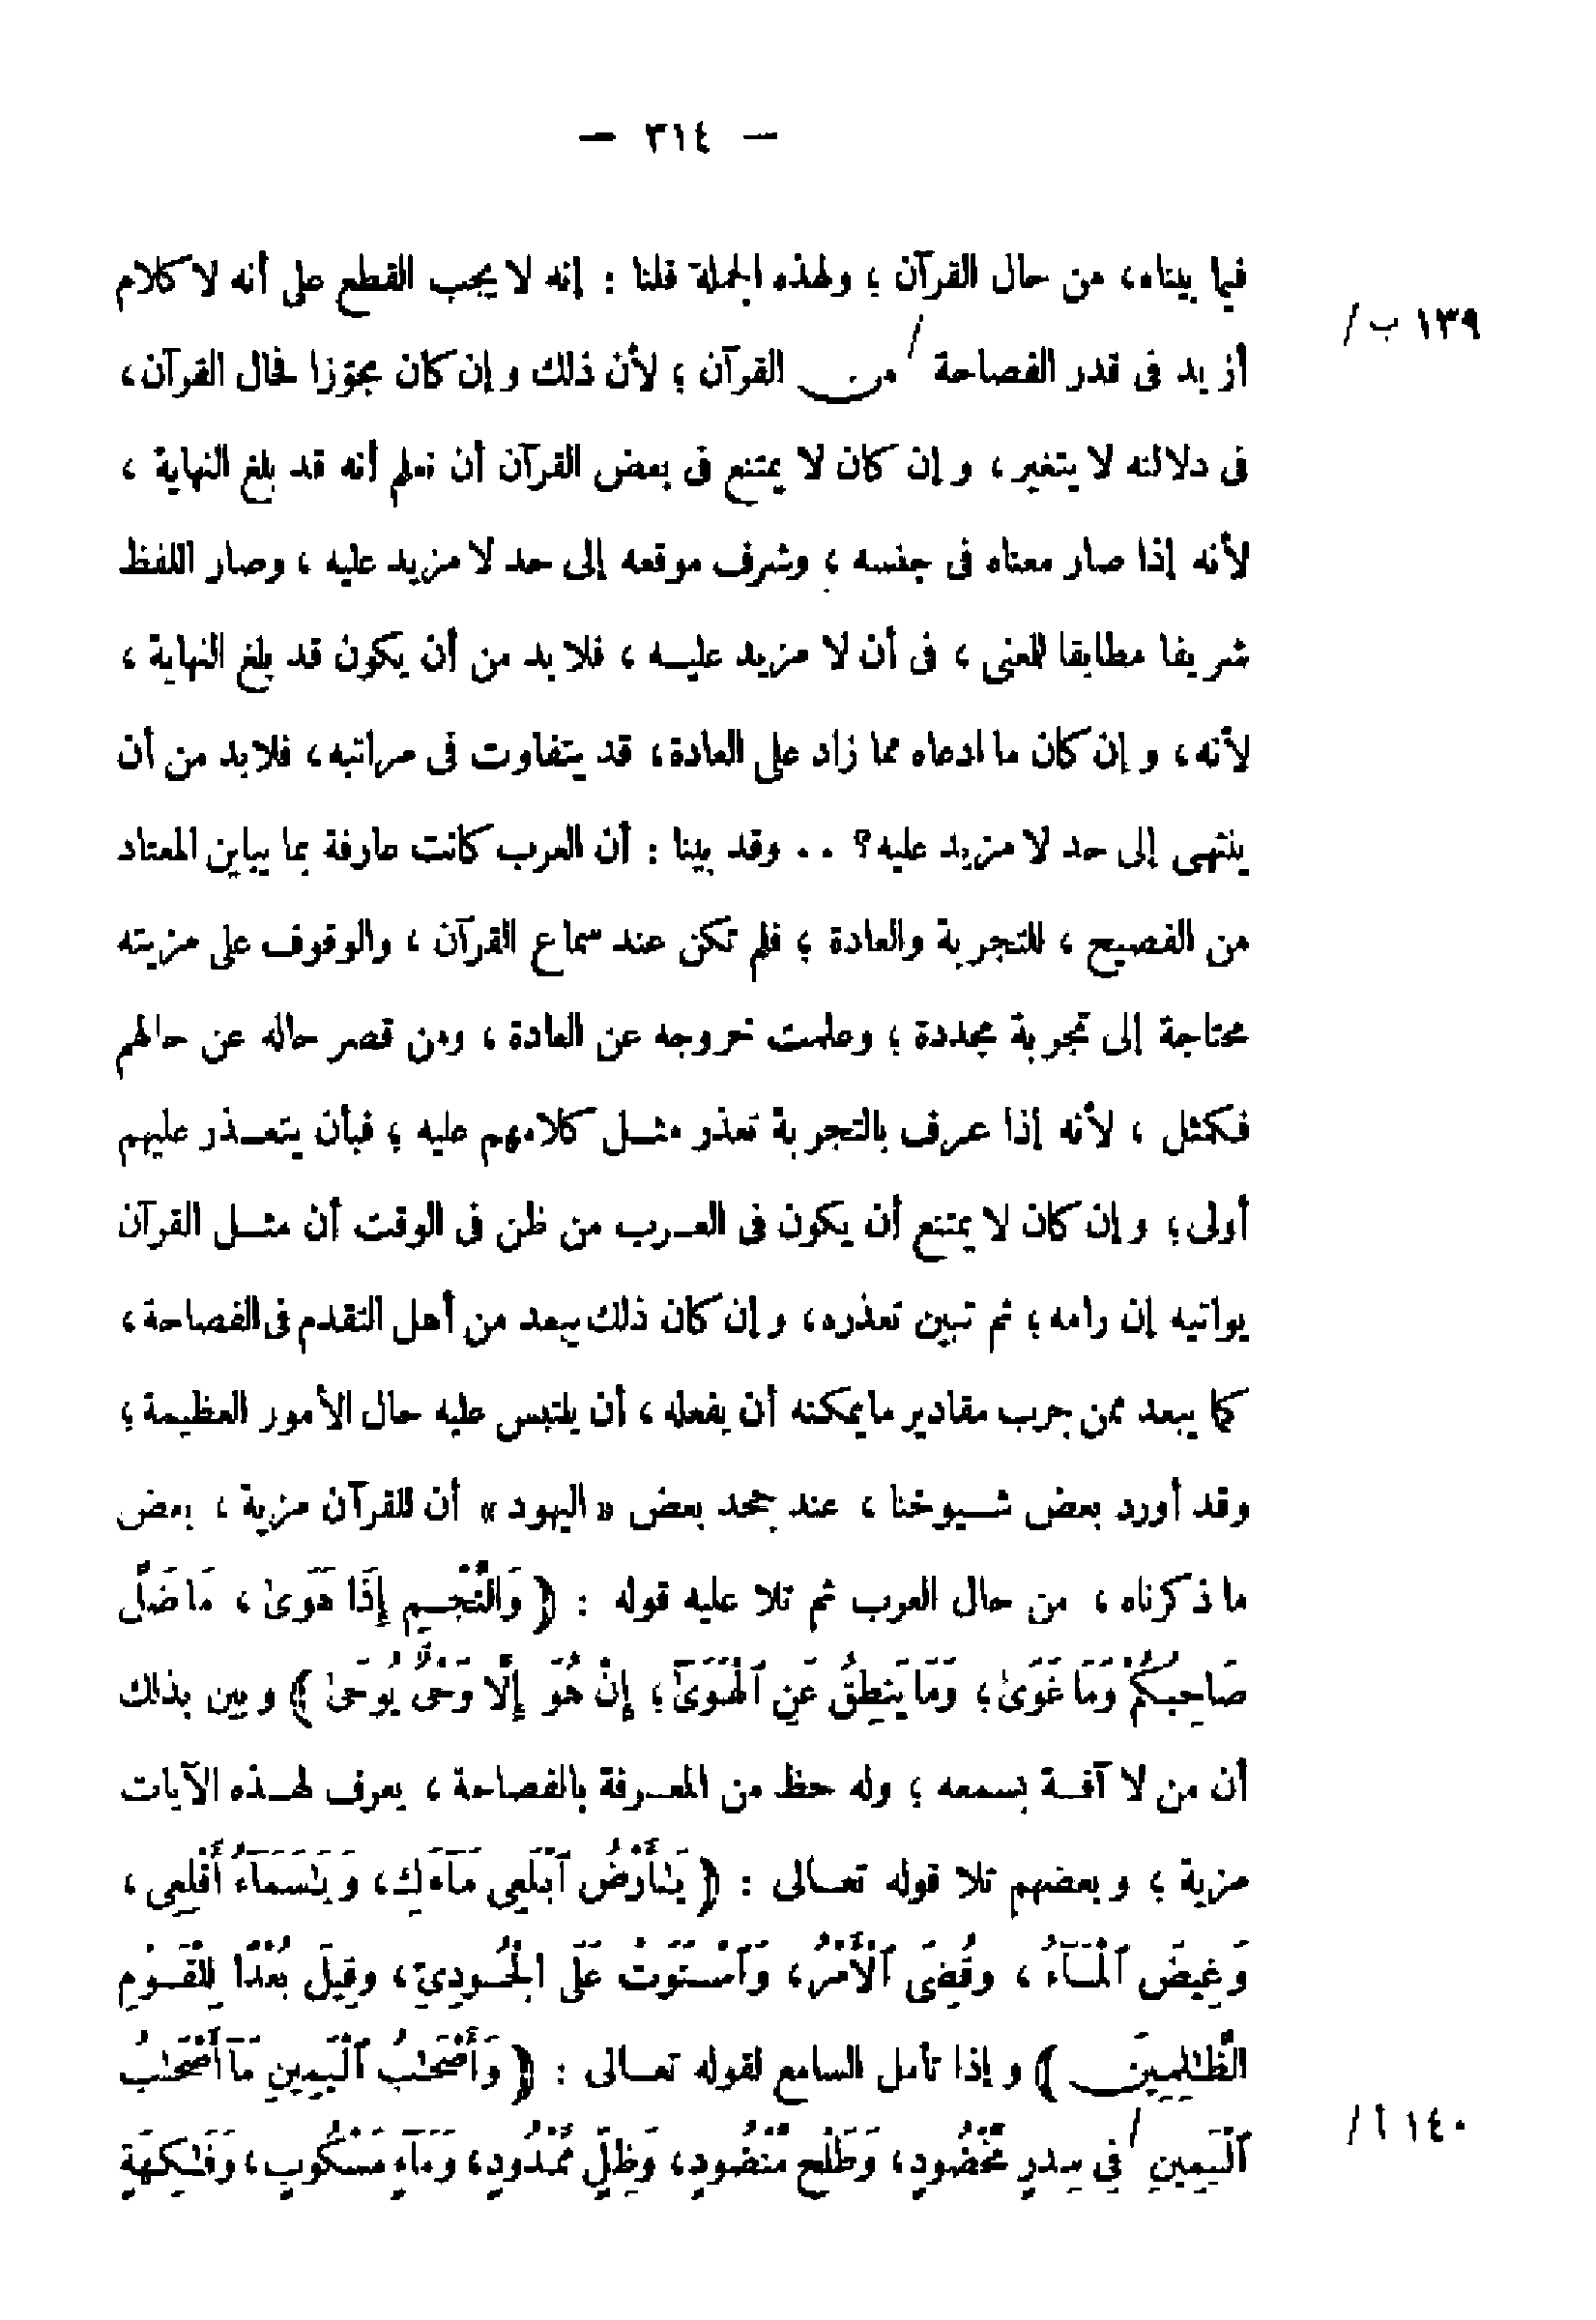 — ٣١٤ —
فيما بيناه، من حال القرآن ؛ ولهذه الجملة قلنا : إنه لا يجب القطع على أنه لا كلام
١٣٩ ب /
أزيد فى قدر الفصاحة / من القرآن ؛ لأن ذلك وإن كان مجوّزا فحال القرآن،
فى دلالته لا يتغير ، وإن كان لا يمتنع فى بعض القرآن أن نعلم أنه قد بلغ النهاية ،
لأنه إذا صار معناه فى جنسه ؛ وشرف موقعه إلى حد لا مزيد عليه ، وصار اللفظ
شريفا مطابقا للمعنى ، فى أن لا مزيد عليــه ، فلا بد من أن يكون قد بلغ النهاية ،
لأنه، وإن كان ما ادعاه مما زاد على العادة، قد يتفاوت فى مراتبه، فلابد من أن
ينتهى إلى حد لا مزيد عليه؟ .. وقد بينا : أن العرب كانت عارفة بما يباين المعتاد
من الفصيح ، للتجربة والعادة ؛ فلم تكن عند سماع القرآن ، والوقوف على مزيته
محتاجة إلى تجربة مجددة ؛ وعلمت خروجه عن العادة ، ومن قصر حاله عن حالهم
فكمثل ، لأنه إذا عرف بالتجربة تعذر مثــل كلامهم عليه ؛ فبأن يتعــذر عليهم
أولى؛ وإن كان لا يمتنع أن يكون فى العــرب من ظن فى الوقت أن مثــل القرآن
يواتيه إن رامه ؛ ثم تبين تعذره، وإن كان ذلك يبعد من أهل التقدم فى الفصاحة،
كما يبعد ممن جرب مقادير مايمكنه أن يفعله ، أن يلتبس عليه حال الأمور العظيمة ؛
وقد أورد بعض شــيوخنا ، عند جحد بعض « اليهود » أن للقرآن مزية ، بعض
ما ذكرناه ، من حال العرب ثم تلا عليه قوله : ﴿ وَالنَّجْــمِ إِذَا هَوَىٰ ، مَا ضَلَّ
صَاحِبُكُمْ وَمَا غَوَىٰ؛ وَمَا يَنطِقُ عَنِ ٱلْهَوَىٰٓ ؛ إِنْ هُوَ إِلَّا وَحْىٌ يُوحَىٰ ﴾ وبين بذلك
أن من لا آفــة بسمعه ؛ وله حظ من المعــرفة بالفصاحة ، يعرف لهــذه الآيات
مزية ؛ وبعضهم تلا قوله تعــالى : ﴿ يَـٰٓأَرْضُ ٱبْلَعِى مَآءَكِ، وَيَـٰسَمَآءُ أَقْلِعِى ،
وَغِيضَ ٱلْمَــآءُ ، وقُضِىَ ٱلْأَمْرُ، وَٱسْــتَوَتْ عَلَى الْجُــودِىِّ، وقِيلَ بُعْدًا لِلْقَــوْمِ
الظَّـٰلِمِينَ ﴾ وإذا تأمل السامع لقوله تعــالى : ﴿ وَأَصْحَـٰبُ ٱلْيَمِينِ مَآ أَصْحَـٰبُ
١٤٠ أ /
ٱلْيَمِينِ / فِى سِدرٍ مَّخْضُودٍ، وَطَلْحٍ مَّنضُودٍ، وَظِلٍّ مَّمْدُودٍ، وَمَآءٍ مَسْكُوبٍ، وَفَـٰكِهَةٍ